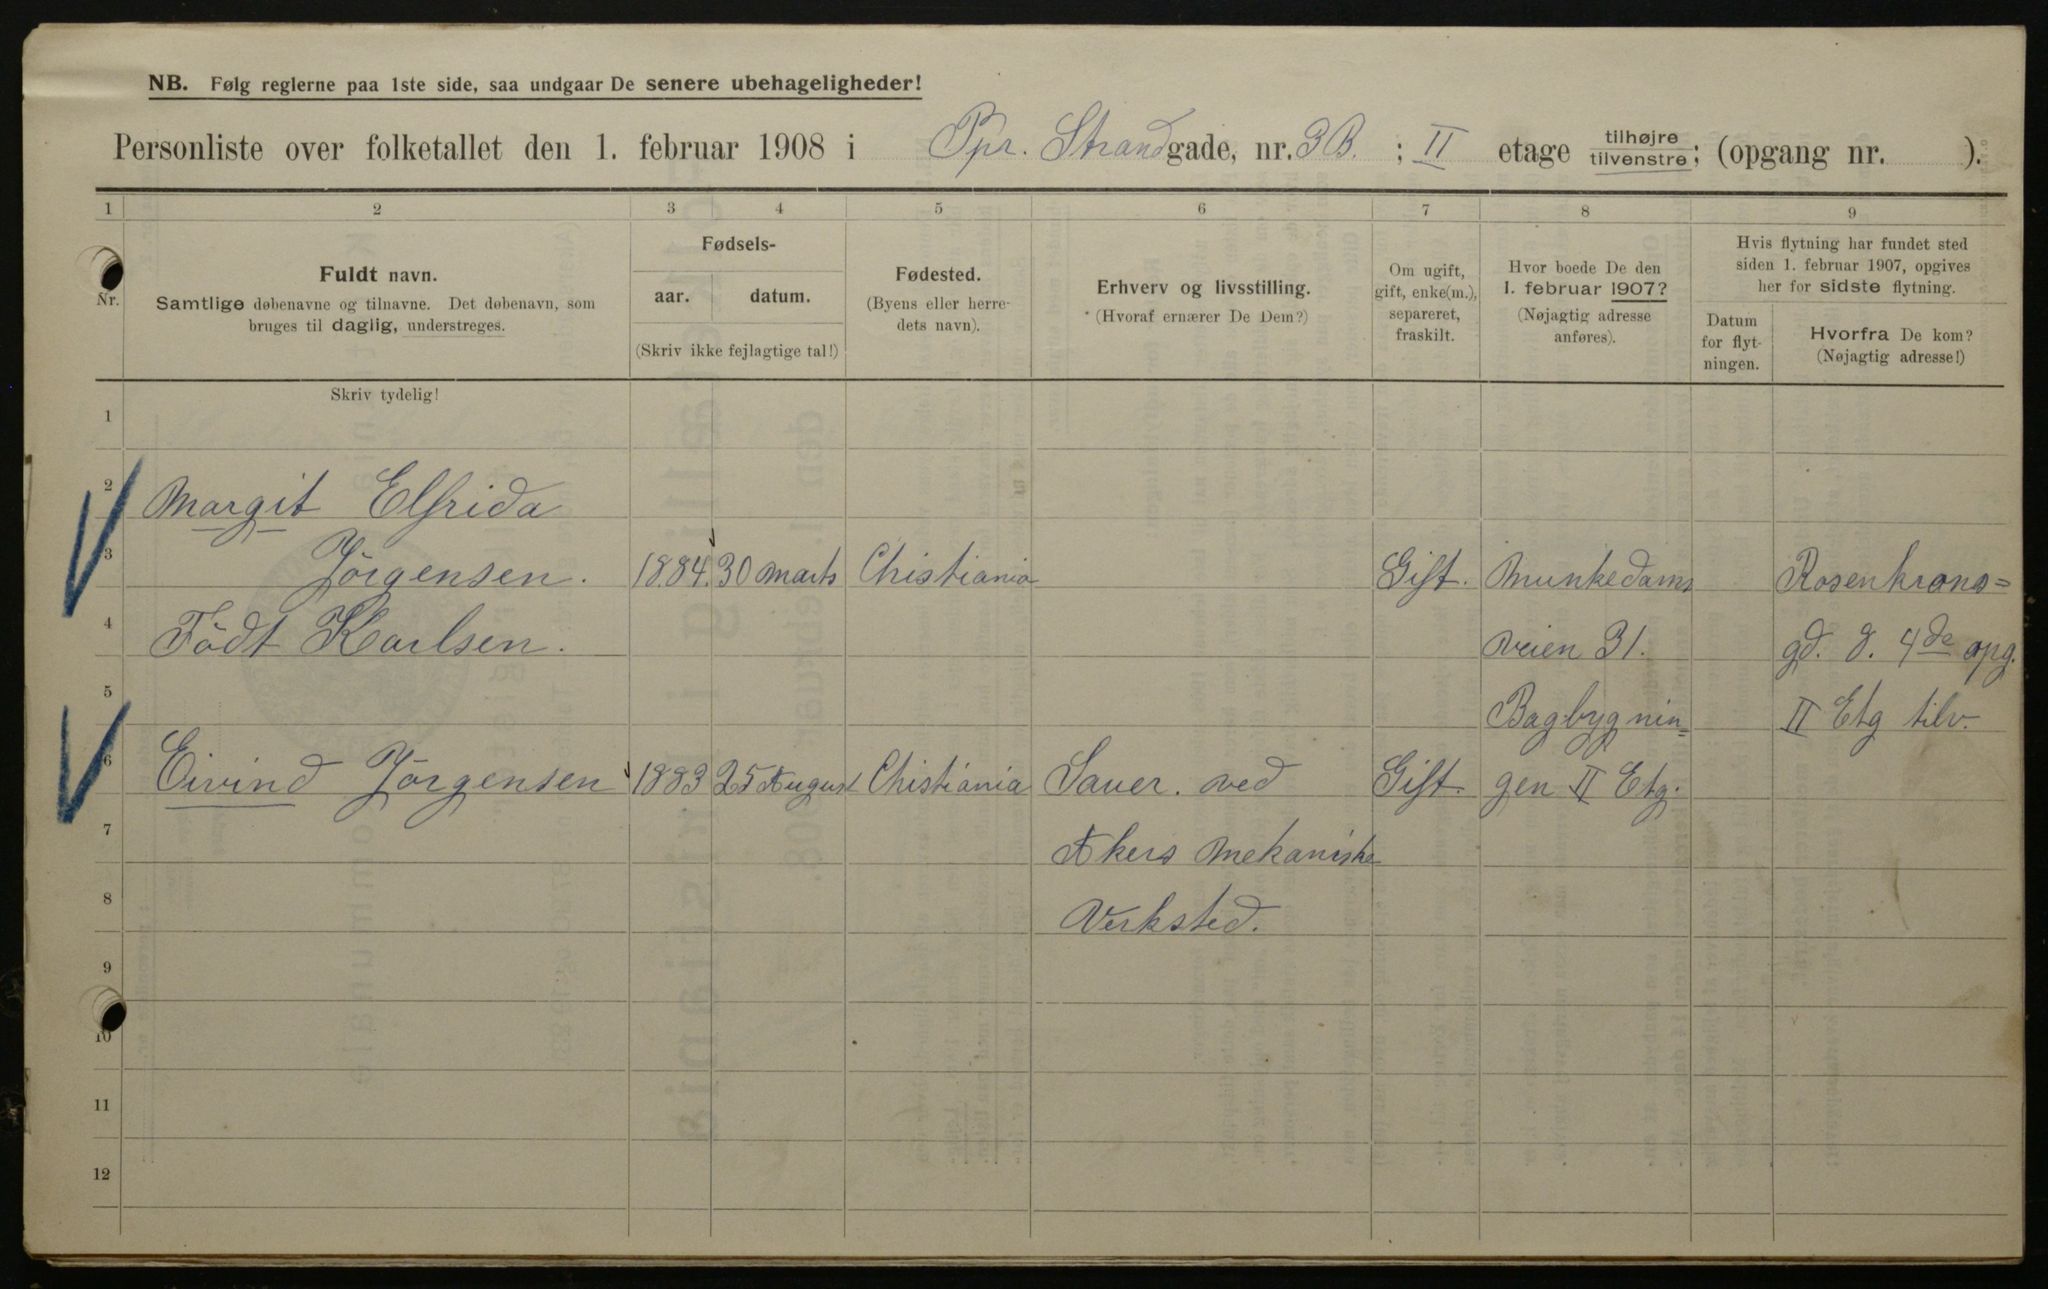 NB. Følg reglerne paa 1ste side, saa undgaar De senere ubehageligheder!
Personliste over folketallet den 1. februar 1908 i Ppr. Strandgade, nr. 3B. ; II etage tilhøjre tilvenstre; (opgang nr. ).
1 2 3 4 5 6 7 8 9
Nr.
Fuldt navn.
Samtlige døbenavne og tilnavne. Det døbenavn, som
bruges til daglig, understreges.
Fødsels-
aar. datum.
(Skriv ikke fejlagtige tal!)
Fødested.
(Byens eller herre-
dets navn).
Erhverv og livsstilling.
(Hvoraf ernærer De Dem?)
Om ugift,
gift, enke(m.),
separeret,
fraskilt.
Hvor boede De den
1. februar 1907?
(Nøjagtig adresse
anføres).
Hvis flytning har fundet sted
siden 1. februar 1907, opgives
her for sidste flytning.
Datum
for flyt-
ningen.
Hvorfra De kom?
(Nøjagtig adresse!)
Skriv tydelig!
1
2 Margit Elfrida
3 Jörgensen. 1884. 30 marts Christiania Gift. Munkedams Rosenkrans=
4 Födt Karlsen. veien 31. gd. 8. 4de opg.
5 Bagbygnin= II Etg tilv.
6 Eivind Jörgensen 1883 25 August Christiania Sauer. ved Gift. gen II Etg.
7 Akers Mekaniske
8 Verksted.
9
10
11
12